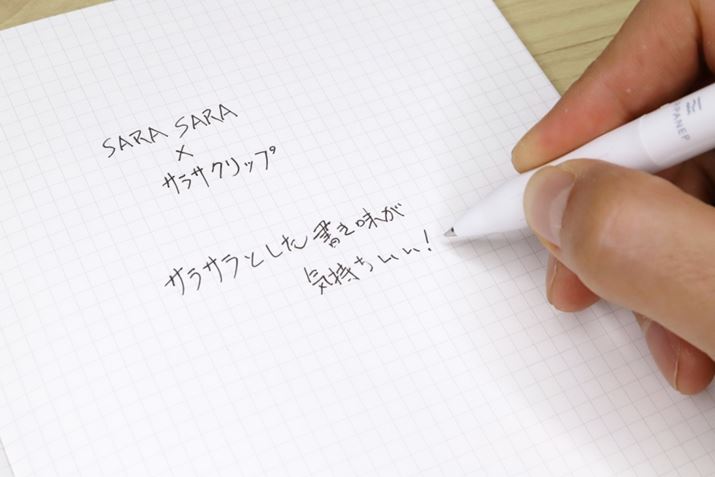 SARA SARA
×
サラサクリップ
サラサラとした書き味が
気持ちいい!